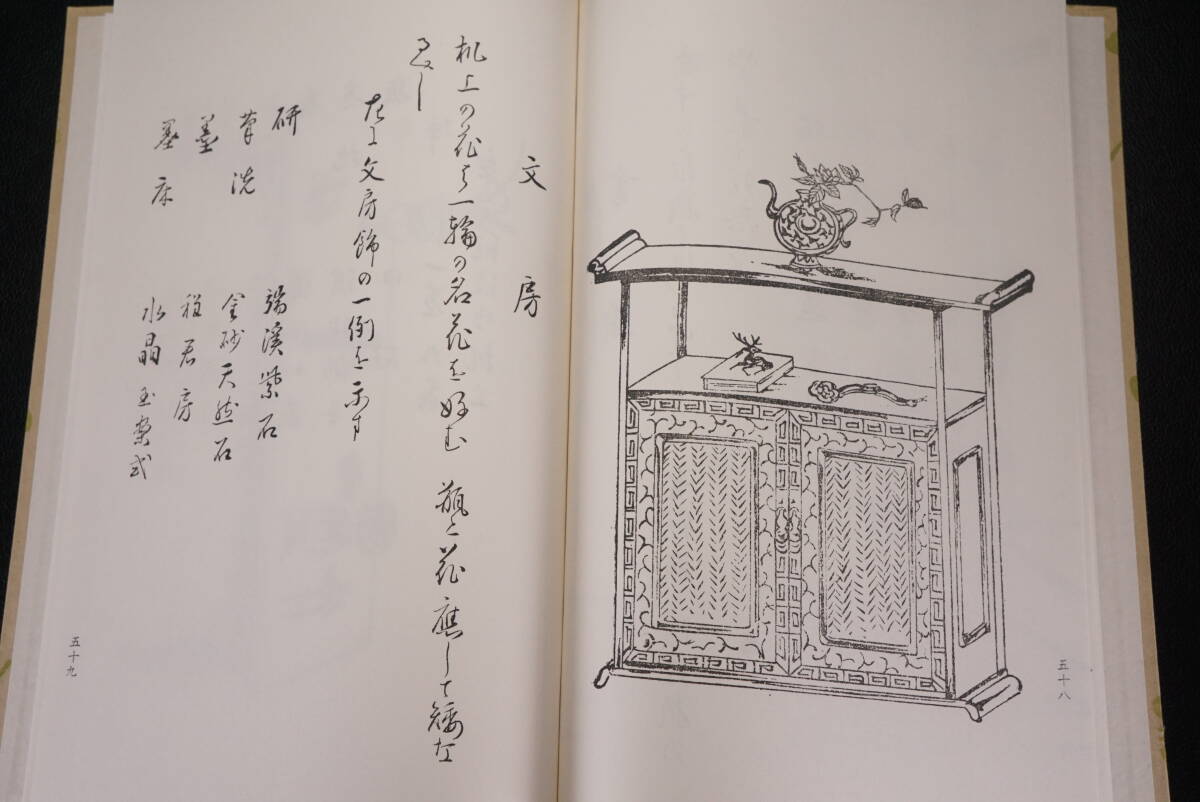 五十八
文房
机上の花は一輪の名花を好む 瓶と花應して矮な
るへし
左に文房飾の一例を示す
研 端溪紫石
筆洗 金砂天然石
墨 程君房
墨床 水晶玉案式
五十九